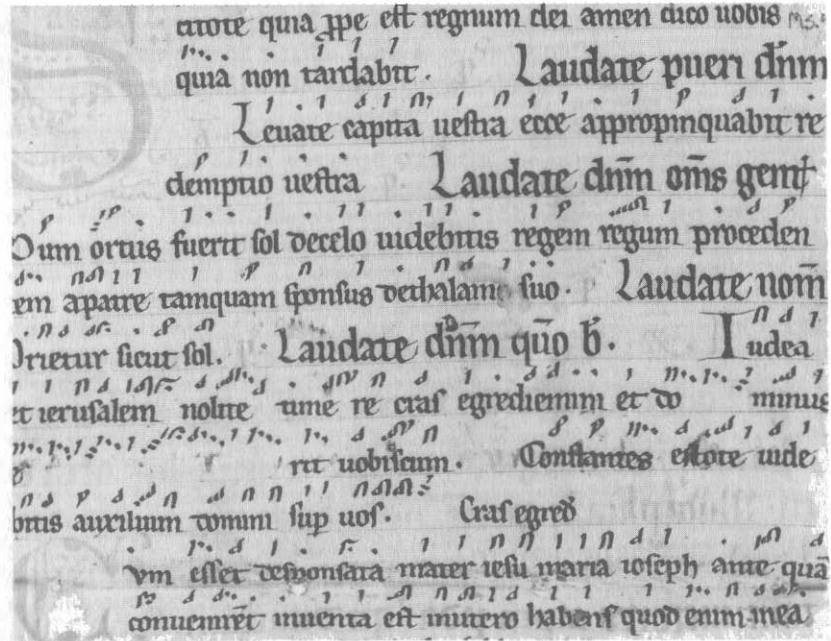 citote quia ꝓpe est regnum dei amen dico uobis Ms.
quia non tardabit. Laudate pueri dn̄m
Leuate capita uestra ecce appropinquabit re
demptio uestra Laudate dn̄m om̄s gent
Dum ortus fuerit sol decelo uidebitis regem regum proceden
em apatre tamquam sponsus dethalamo suo. Laudate nom̄
Orietur sicut sol. Laudate dn̄m qūo b. Iudea
et ierusalem nolite time re cras egrediemini et do minus
rit uobiscum. Constantes estote uide
bitis auxilium domini sup uos. Cras egred
vm esset desponsata mater iesu maria ioseph ante quā
conuenirēt inuenta est inutero habens quod enim inea